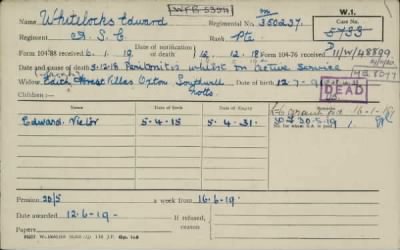 WFB 5394
W.I.
Name Whitelocks Edward Regimental No. M 350237. Case No. 5433
Regiment A. S. C Rank Pte. 11/W/48899
Form 104-88 received 6. 1. 19 Date of notification of death 12. 12. 18 Form 104-76 received
Date and cause of death 3.12.18. Peritonitis whilst on active service
Widow Edith Forest Villas Oxton Southwell Date of birth 12-7-9
Notts DEAD
Children:—
Date of Birth. Date of Expiry.
Edward Victor 5-4-15 5-4-31.
Pension 20/5 a week from 16-6-19.
Date awarded 12-6-19 If refused, reason
Papers